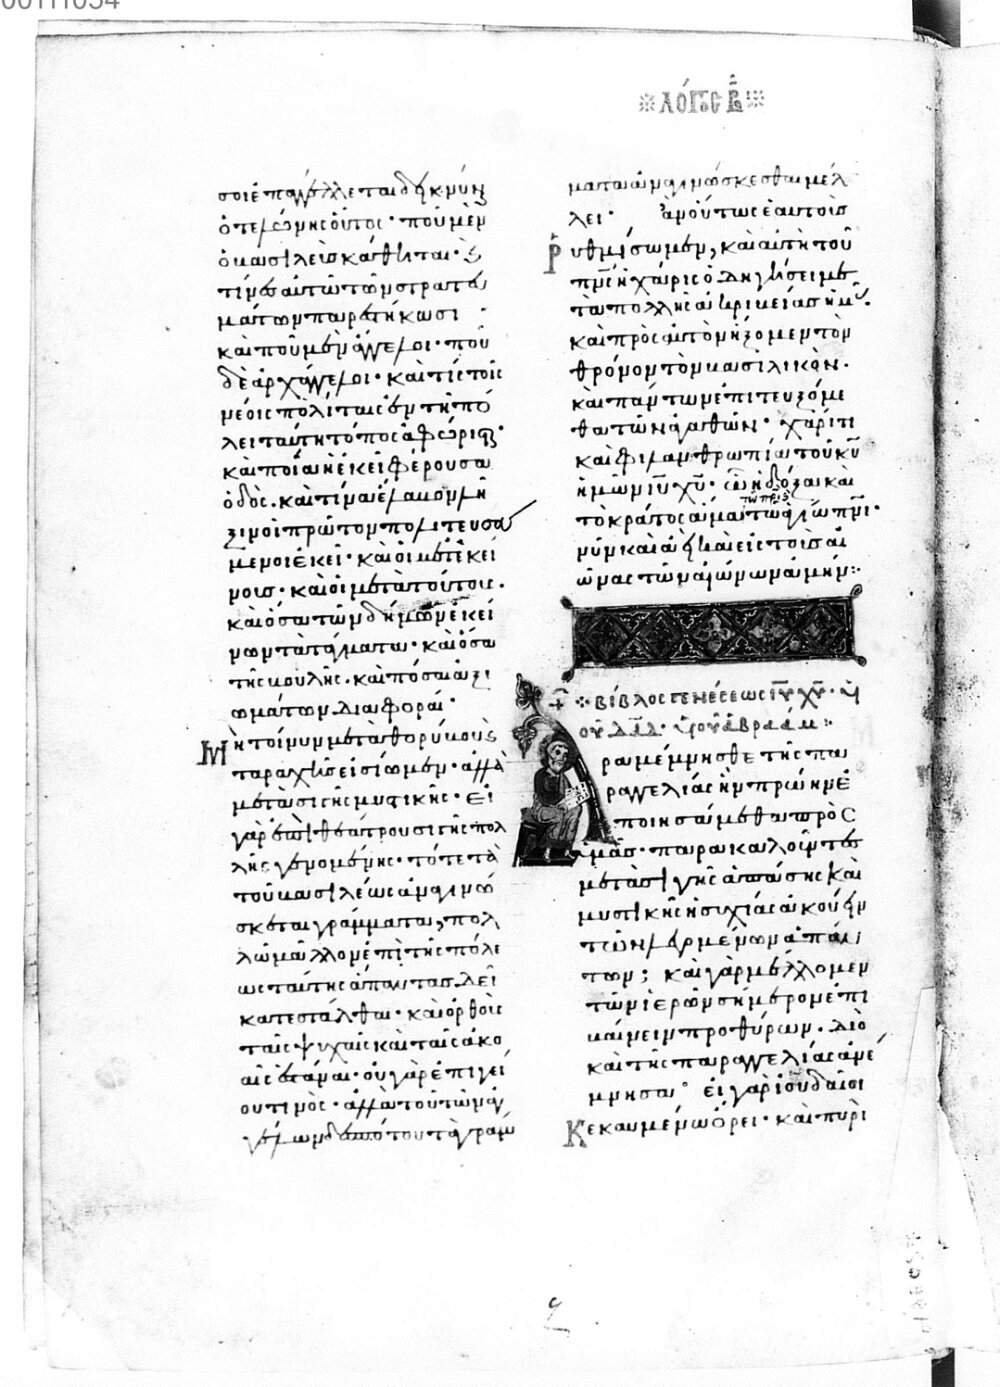 00111054
※ λόγος β̅ ※
σοι ἐπαγγέλλεται δήκνυν
ὁ τελώνης οὗτος· ποῦ μὲν
ὁ βασιλεὺς κάθηται· καὶ
τίνες αὐτῶ τῶν στρατευ
μάτων παρεστήκωσι
καὶ ποῦ μὲν ἄγγελοι· ποῦ
δὲ ἀρχάγγελοι· καὶ τίς τοῖς
νέοις πολίταις ἐν τῆ πό
λει ταύτη τόπος ἀφώρισται·
καὶ ποία ἡ ἐκεῖ φέρουσα
ὁδὸς· καὶ τίνα ἔλαβον λῆ
ξιν οἱ πρῶτον πολιτευσά
μενοι ἐκεῖ· καὶ οἱ μετ' ἐκεί
νους· καὶ οἱ μετὰ τούτους·
καὶ ὅσα τῶν δήμων ἐκεί
νων τὰ τάγματα· καὶ ὅσα
τῆς βουλῆς· καὶ πόσαι ἀξι
ωμάτων διαφοραί·
Μὴ τοίνυν μετὰ θορύβου καὶ
ταραχῆς εἰσίωμεν· ἀλλὰ
μετὰ σιγῆς μυστικῆς· εἰ
γὰρ ἐν θεάτρου σιγῆς πολ
λῆς γενομένης· τότε τὰ
τοῦ βασιλέως ἀναγινώ
σκεται γράμματα, πολ
λῶ μᾶλλον ἐπὶ τῆς πόλε
ως ταύτης ἅπαντας δεῖ
κατεστάλθαι· καὶ ὀρθαῖς
ταῖς ψυχαῖς καὶ ταῖς ἀκο
αῖς ἑστάναι· οὐ γὰρ ἐπιγεί
ου τινὸς· ἀλλὰ τοῦ τῶν ἀγ
γέλων δεσπότου τὰ γράμ
ματα ἀναγινώσκεσθαι μέλ
λει· ἂν οὕτως ἑαυτοὺς
ῥυθμίσωμεν, καὶ αὐτὴ τοῦ
πνς ἡ χάρις ὁδηγήσει με
τὰ πολλῆς ἀκριβείας ἡμᾶς·
καὶ πρὸς αὐτὸν ἥξομεν τὸν
θρόνον τὸν βασιλικὸν·
καὶ πάντων ἐπιτευξόμε
θα τῶν ἀγαθῶν· χάριτι
καὶ φιλανθρωπία τοῦ κυ
ἡμῶν ιυ χυ· ὧ ἡ δόξα καὶ
τὸ κράτος ἅμα τῶ πρι τῶ ἁγίω πνι·
νῦν καὶ ἀεὶ καὶ εἰς τοὺς αἰ
ῶνας τῶν αἰώνων ἀμήν:·
+ ※ βίβλος γενέσεως ιυ χυ· υἱ
οῦ δαδ· υἱοῦ ἀβραάμ:·
Ἆρα μέμνησθε τῆς πα
ραγγελίας ἣν πρώην ἐ
ποιησάμεθα πρὸς
ὑμᾶς· παρακαλοῦντες
μετὰ σιγῆς ἁπάσης καὶ
μυστικῆς ἡσυχίας ἀκούειν
τῶν λεγομένων ἁπάν
των; καὶ γὰρ μέλλομεν
τῶν ἱερῶν σήμερον ἐπι
βαίνειν προθύρων· διὸ
καὶ τῆς παραγγελίας ἀνέ
μνησα· εἰ γὰρ ἰουδαῖοι
Κεκαυμένω ὄρει· καὶ πυρὶ